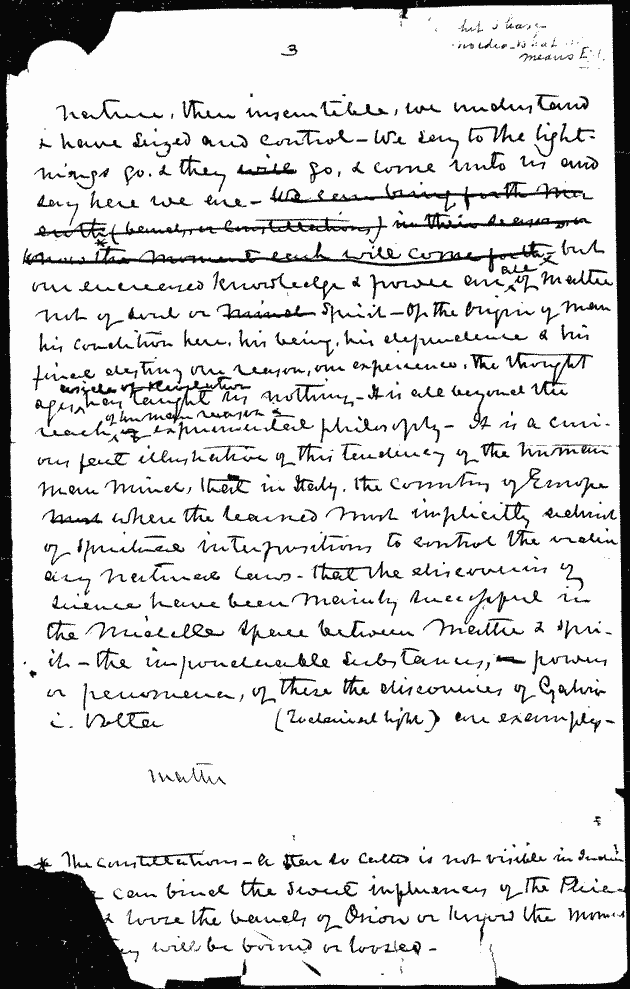 but I have
no idea what
means Ed.
3
Nature, then inscrutible, we understand
& have seized and control – We say to the light-
nings go, & they will go, & come unto us and
say here we are – We can bring forth Ma
zaroth (bands, or Constellations) in their season, or
know the moment each will come forth but
our encreased knowledge & power are all of Matter
not of soul or Mind Spirit – Of the Origin of man
his condition here, his being, his dependence & his
final destiny our reason, our experience, the thought
aside of Revelation
ages, has taught us nothing – It is all beyond the
of human reason &
reach of experimental philosophy – It is a curi-
ous fact illustrative of this tendency of the human
man Mind, that in Italy, the country of Europe
Most where the learned most implicitly admit
of spiritual interpositions to control the ordin
ary natural laws – that the discoveries of
science have been mainly successful in
the Middle space between Matter & Spri-
it – the imponderable substances, powers
or penomena, of these the discoveries of Galvin
i. Volta (Zodiacal light) are examples –
Matter
* The constellations – a star so called is not visible in
can bind the sweet influences of the Pleia
loose the bands of Orion or know the moment
they will be bound or loosed –